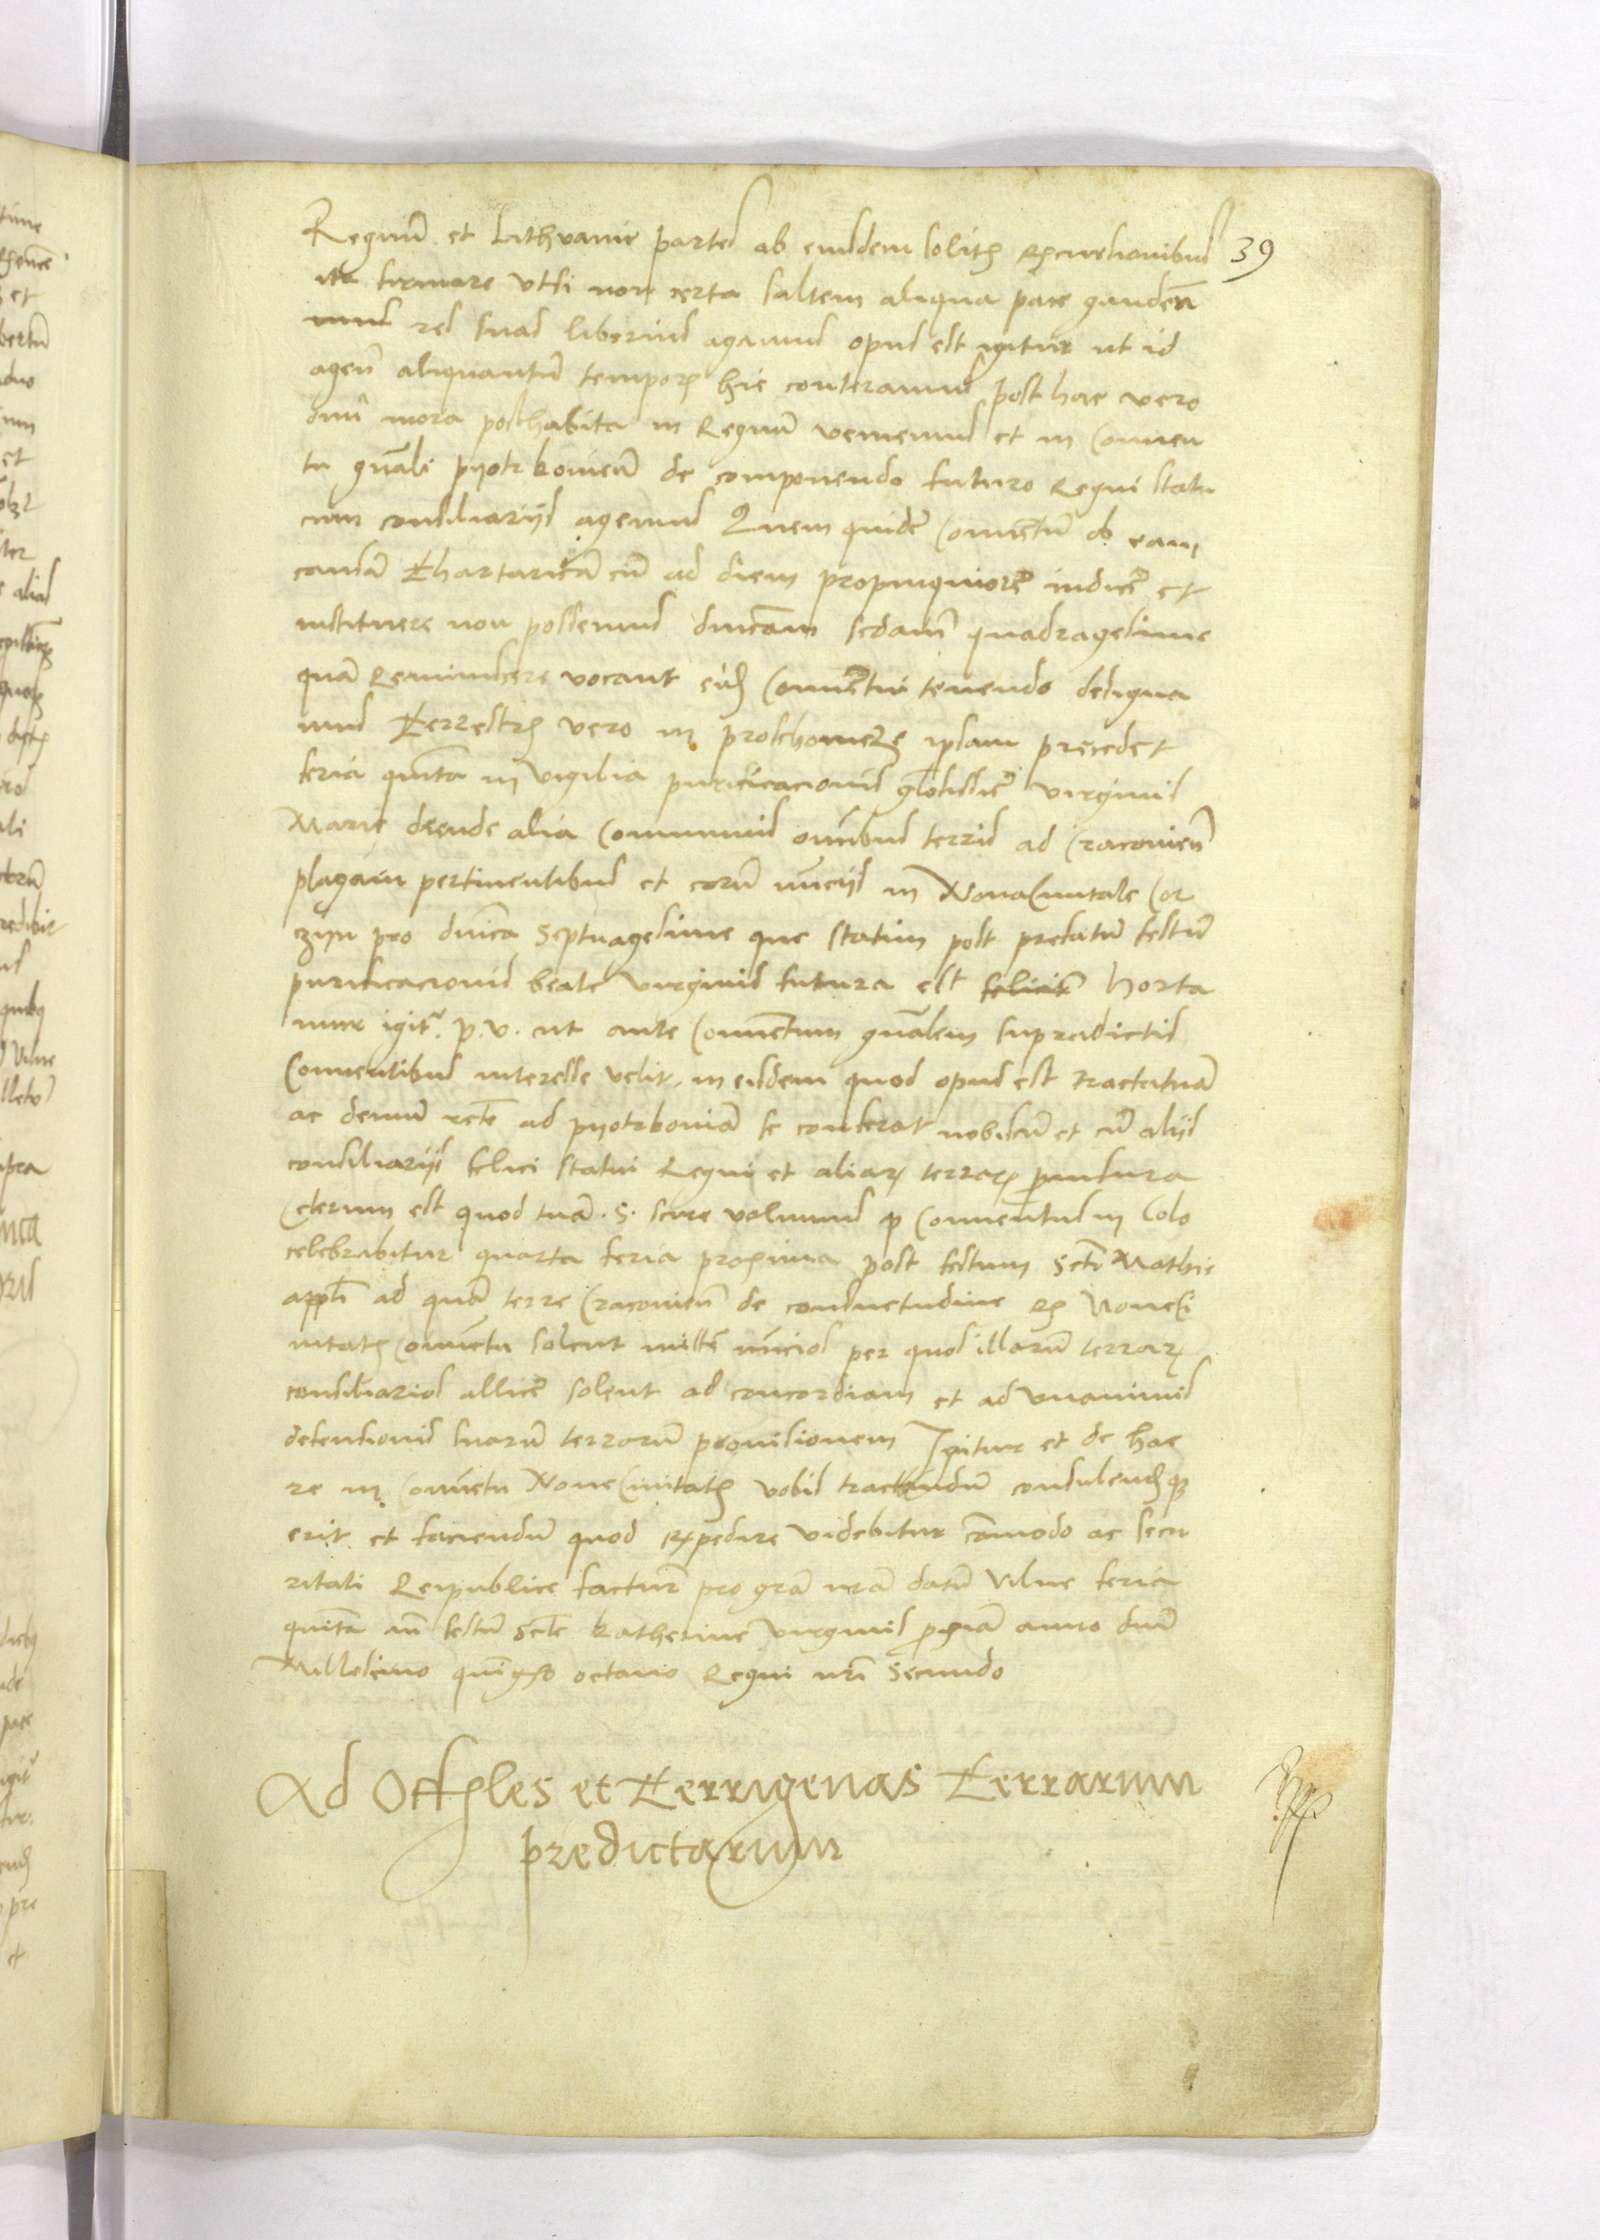 39
Regnum et Lithvanie partes ab eiusdem solitis excursionibus
ita firmare ut si non certa saltem aliqua pace gauden
mus res suas liberius agamus opus est igitur ut id
agen aliquantum temporis hic conteramus post hac vero
omni mora posthabita in Regnum veniemus et in Conven
tu gnali pyotrkovien de componendo futuro Regni statu
cum consiliariis agemus Quem quidem Conventum ob eam
causam Thartaricam cum ad diem propinquiorem indicere et
instituere non possemus dnicam secdam quadragesime
quam Reminiscere vocant eidem Conventui tenendo designa
mus Terrestris vero in proschowicze ipsam precedet
feria quinta in vigilia purificacionis gloriosissime virginis
Marie deinde alia Communis omnibus terris ad Cracovien
plagam pertinentibus et eorum nuncijs in Nova Civitate Cor
czyn pro dnica Septuagesime que statim post prefatum festum
purificacionis beate virginis futura est Horta
mur igitur p. v. ut ante Conventum gnalem supradictis
Conventibus interesse velit, in eisdem quod opus est tractatura
ac demum recte ad pyotrkoviam se conferat nobiscum et cum alijs
consiliarijs felici statui Regni et aliarum terrarum provisura
Ceterum est quod tuam. S. scire volumus quod Conventus in Colo
celebrabitur quarta feria proxima post festum Scti Mathie
appli ad quam terre Cracovien de consuetudine ex Noveci
vitatis Conventu solent mittere nuncios per quos illarum terrarum
consiliarios allicere solent ad concordiam et ad unanimis
defensionis suarum terrarum provisionem Igitur et de hac
re in Conventu Nove Civitatis vobis tractandum consulendumque
erit et faciendum quod expedire videbitur commodo ac secu
ritati Reipublice factura pro gra nra datum Vilne feria
quinta an festum Scte Katherine virginis proxima anno dni
Millesimo quingmo octavo Regni nri secundo
Ad Officiales et Terrigenas Terrarum
predictarum